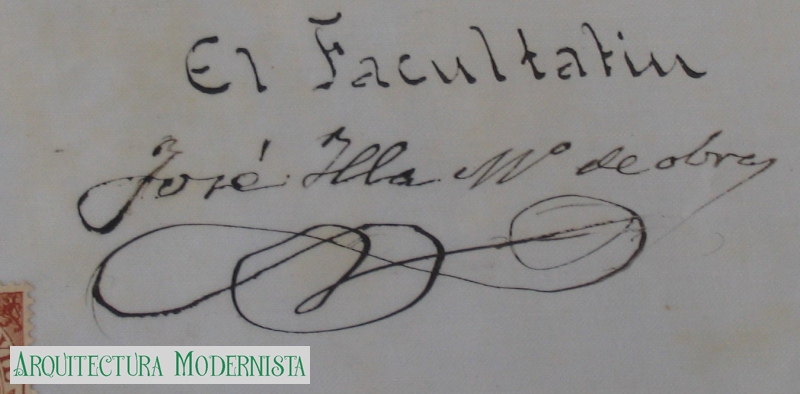 El Facultatiu
José Illa Mº de obras
ARQUITECTURA MODERNISTA